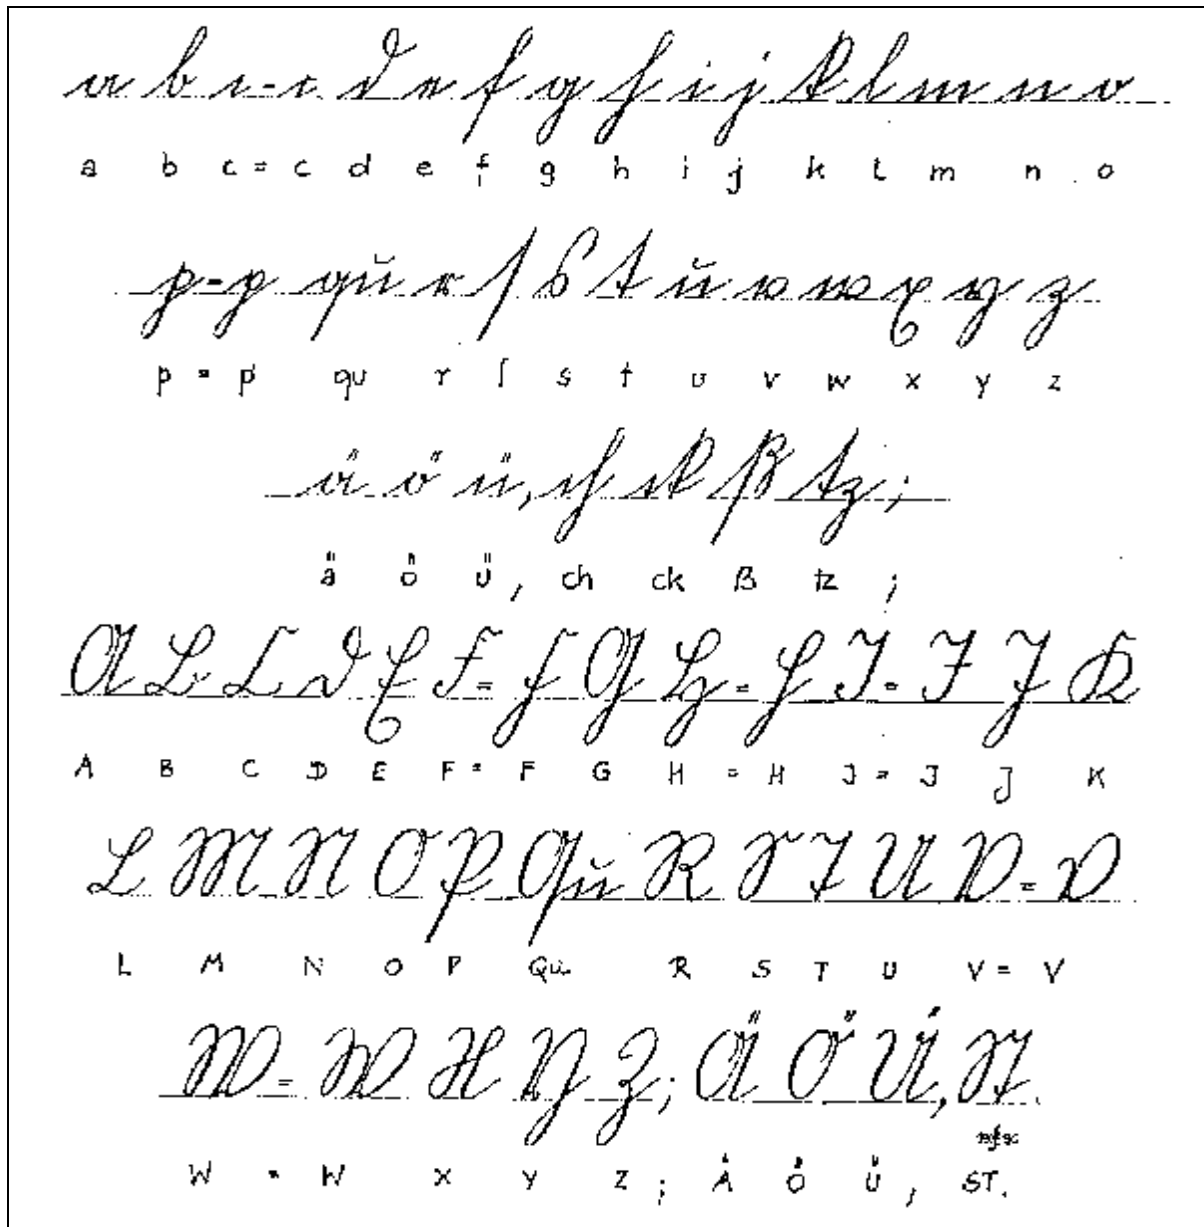 a b c - c d e f g h i j k l m n o
a b c = c d e f g h i j k l m n o
p = p qu r ſ s t u v w x y z
p = p qu r ſ s t u v w x y z
ä ö ü, ch ck ß tz ;
ä ö ü, ch ck ß tz ;
A B C D E F = F G H = H I = I J K
A B C D E F = F G H = H J = J J K
L M N O P Qu R S T U V = V
L M N O P Qu R S T U V = V
W = W X Y Z ; Ä Ö Ü, St.
W = W X Y Z ; Ä Ö Ü, ST.